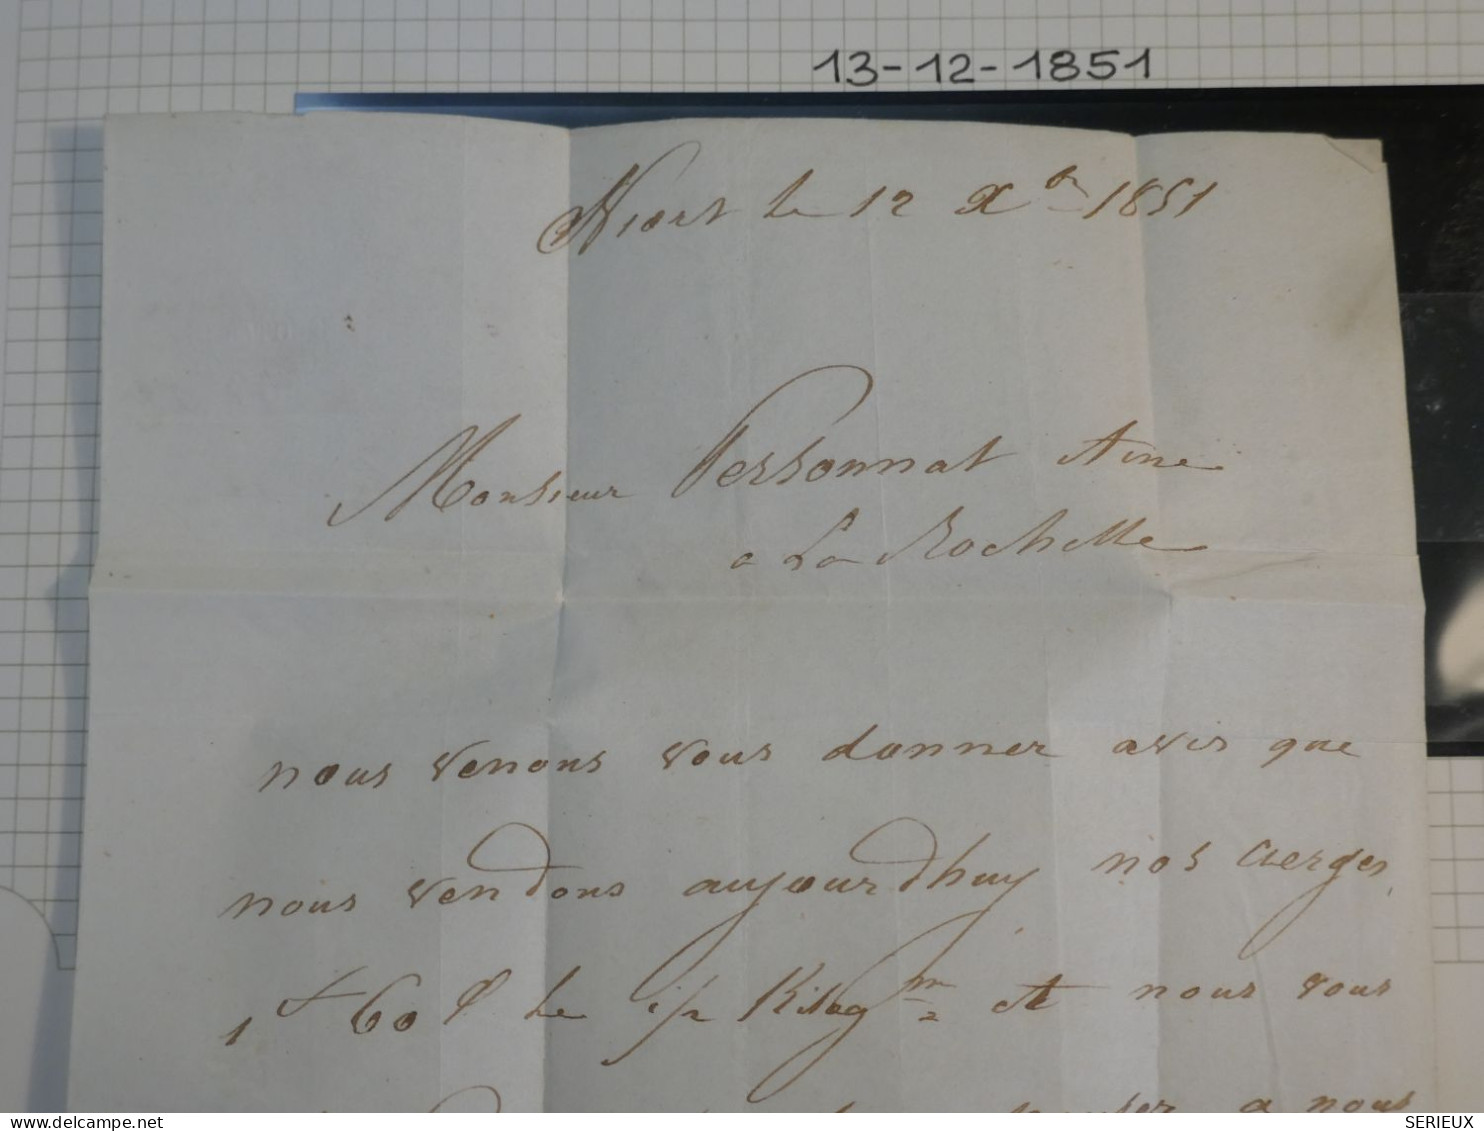 13-12-1851
Niort le 12 Xbre 1851
Monsieur Personnat Aine
a La Rochelle
nous venons vous donner avis que
nous vendons aujourdhuy nos cierges
1f 60c le 1/2 Kilogme et nous vous
a nous
SERIEUX